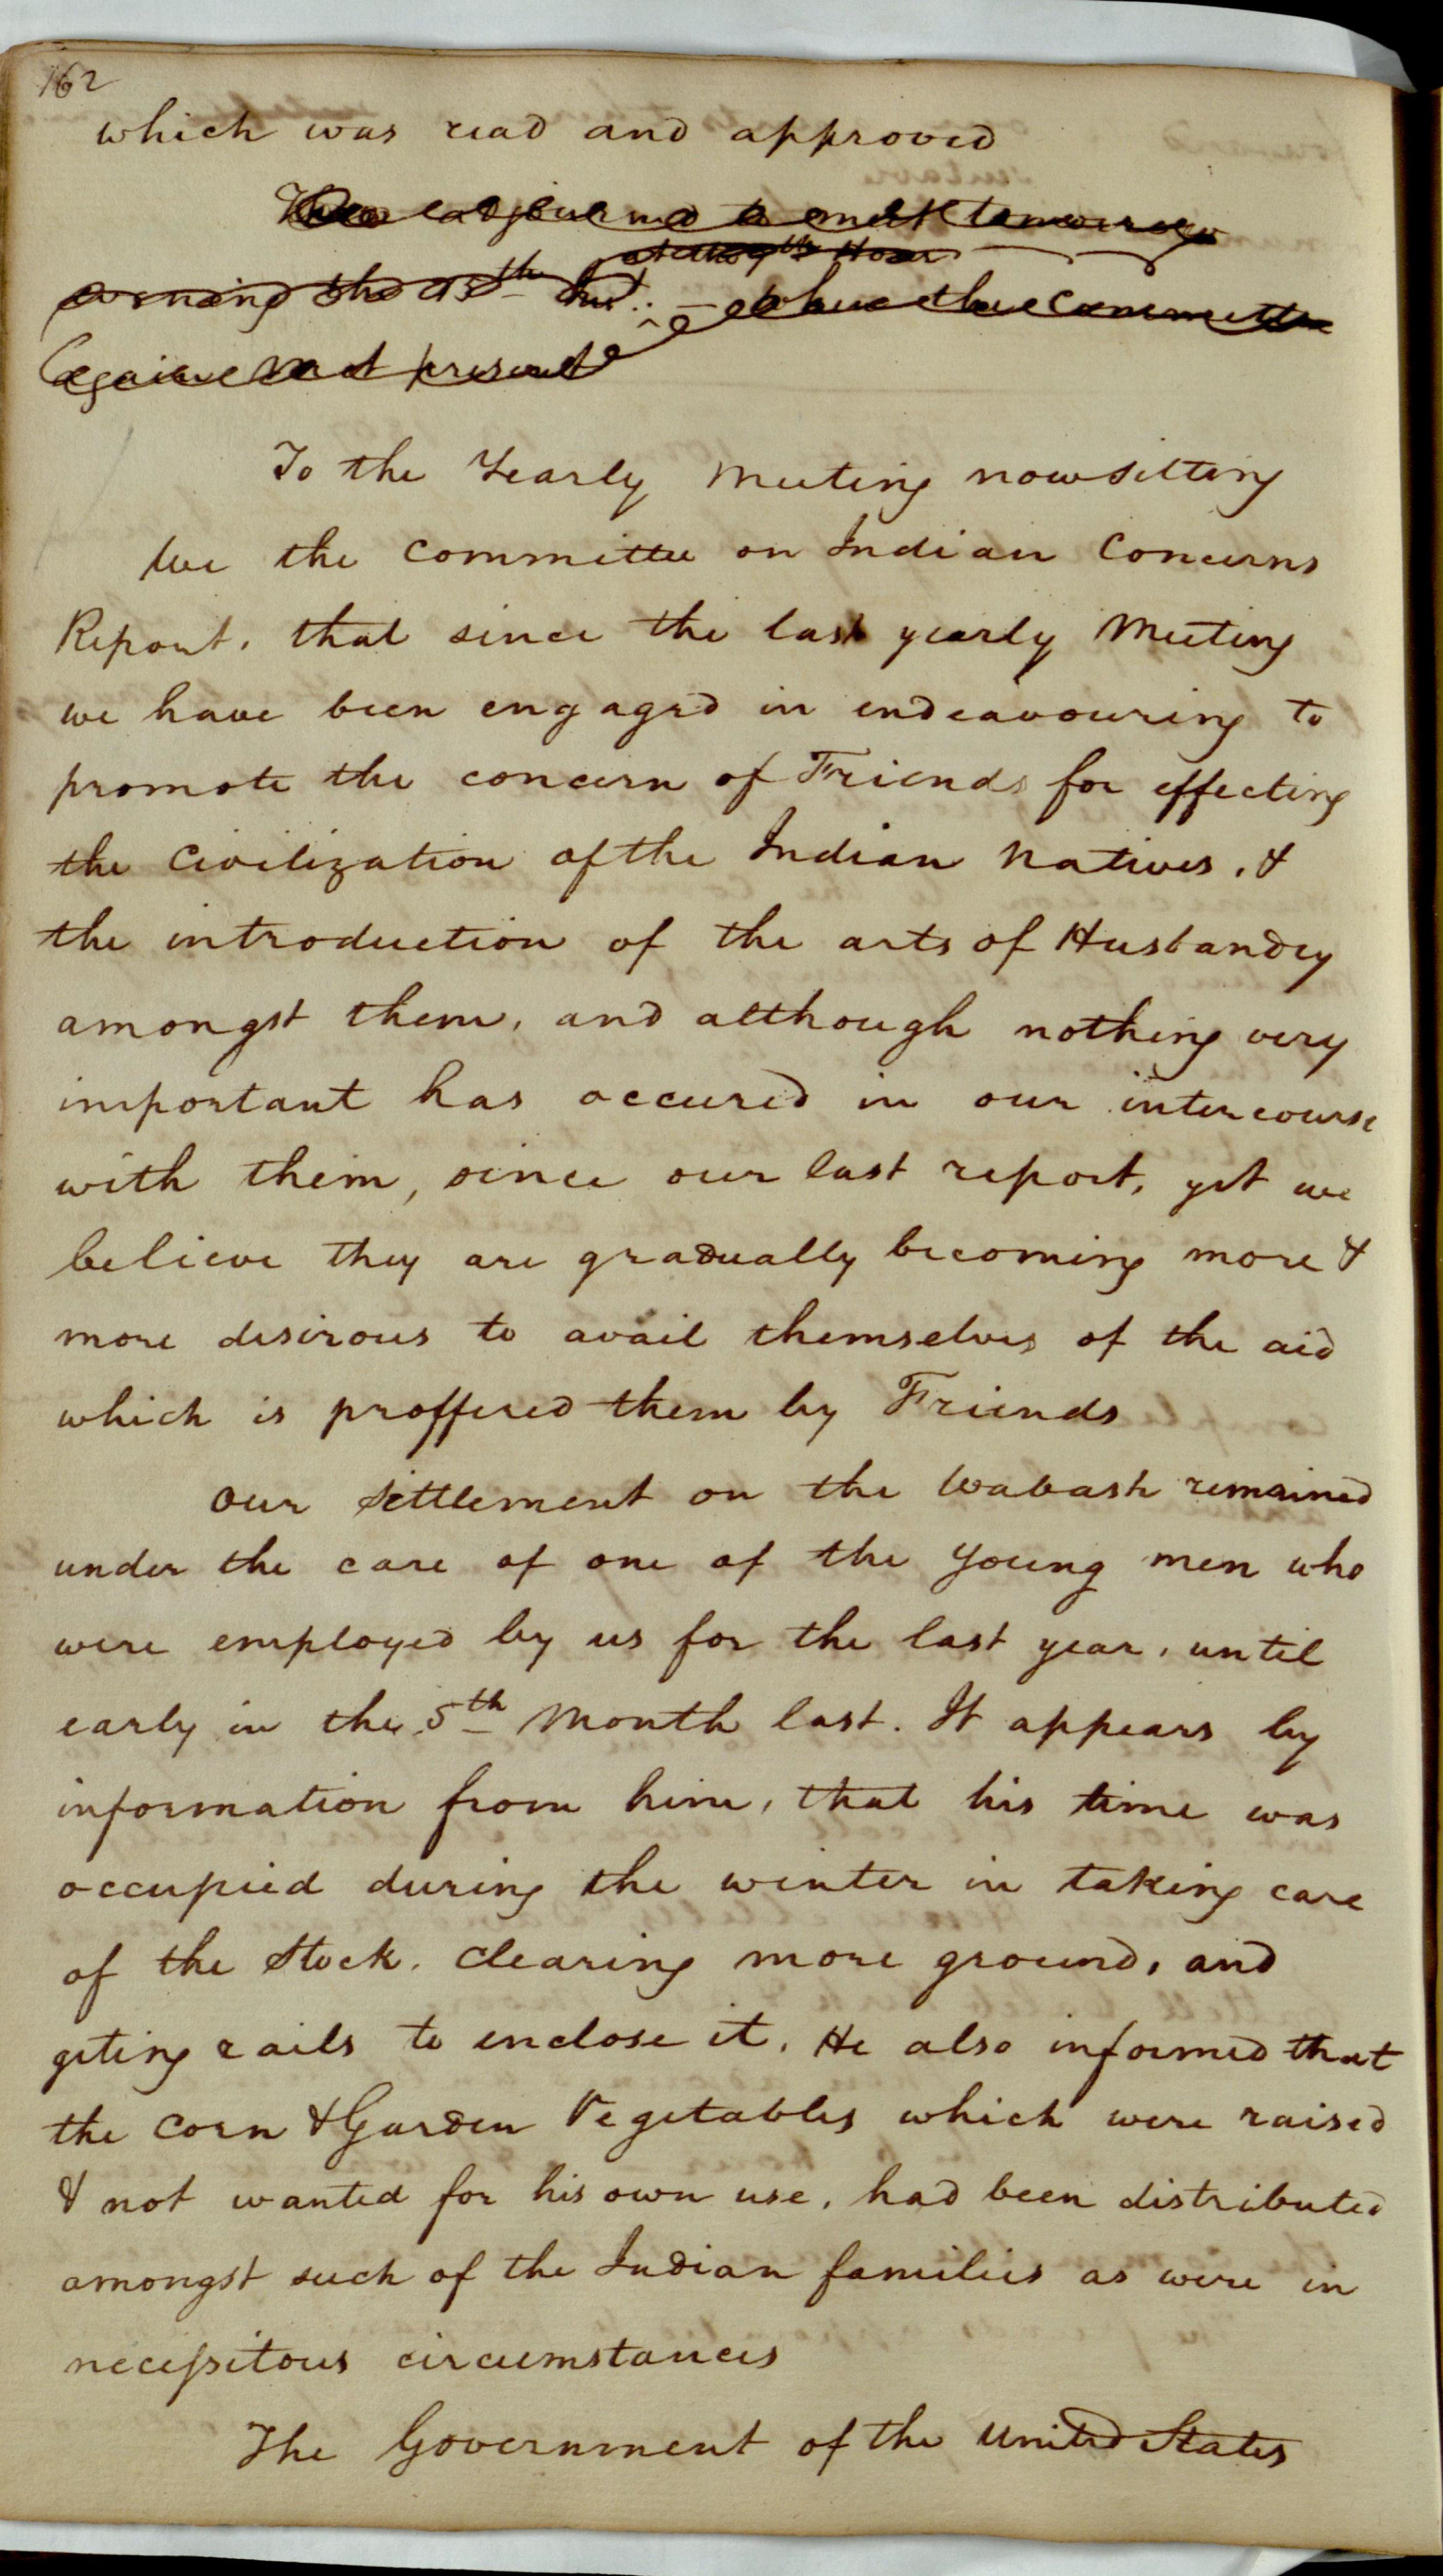 162
which was read and approved
Then adjourned to meet tomorrow
at the 7th Hour
evening the 15th Inst. – when the Committee
again met present
To the Yearly Meeting now sitting
We the Committee on Indian Concerns
Report, that since the last yearly Meeting
we have been engaged in endeavouring to
promote the concern of Friends for effecting
the Civilization of the Indian Natives, &
the introduction of the arts of Husbandry
amongst them, and although nothing very
important has occured in our intercourse
with them, since our last report, yet we
believe they are gradually becoming more &
more desirous to avail themselves of the aid
which is proffered them by Friends
Our Settlement on the Wabash remained
under the care of one of the young men who
were employed by us for the last year, until
early in the 5th Month last. It appears by
information from him, that his time was
occupied during the winter in taking care
of the Stock, clearing more ground, and
geting rails to enclose it. He also informed that
the Corn & Garden Vegetables which were raised
& not wanted for his own use, had been distributed
amongst such of the Indian families as were in
necessitous circumstances
The Government of the United States